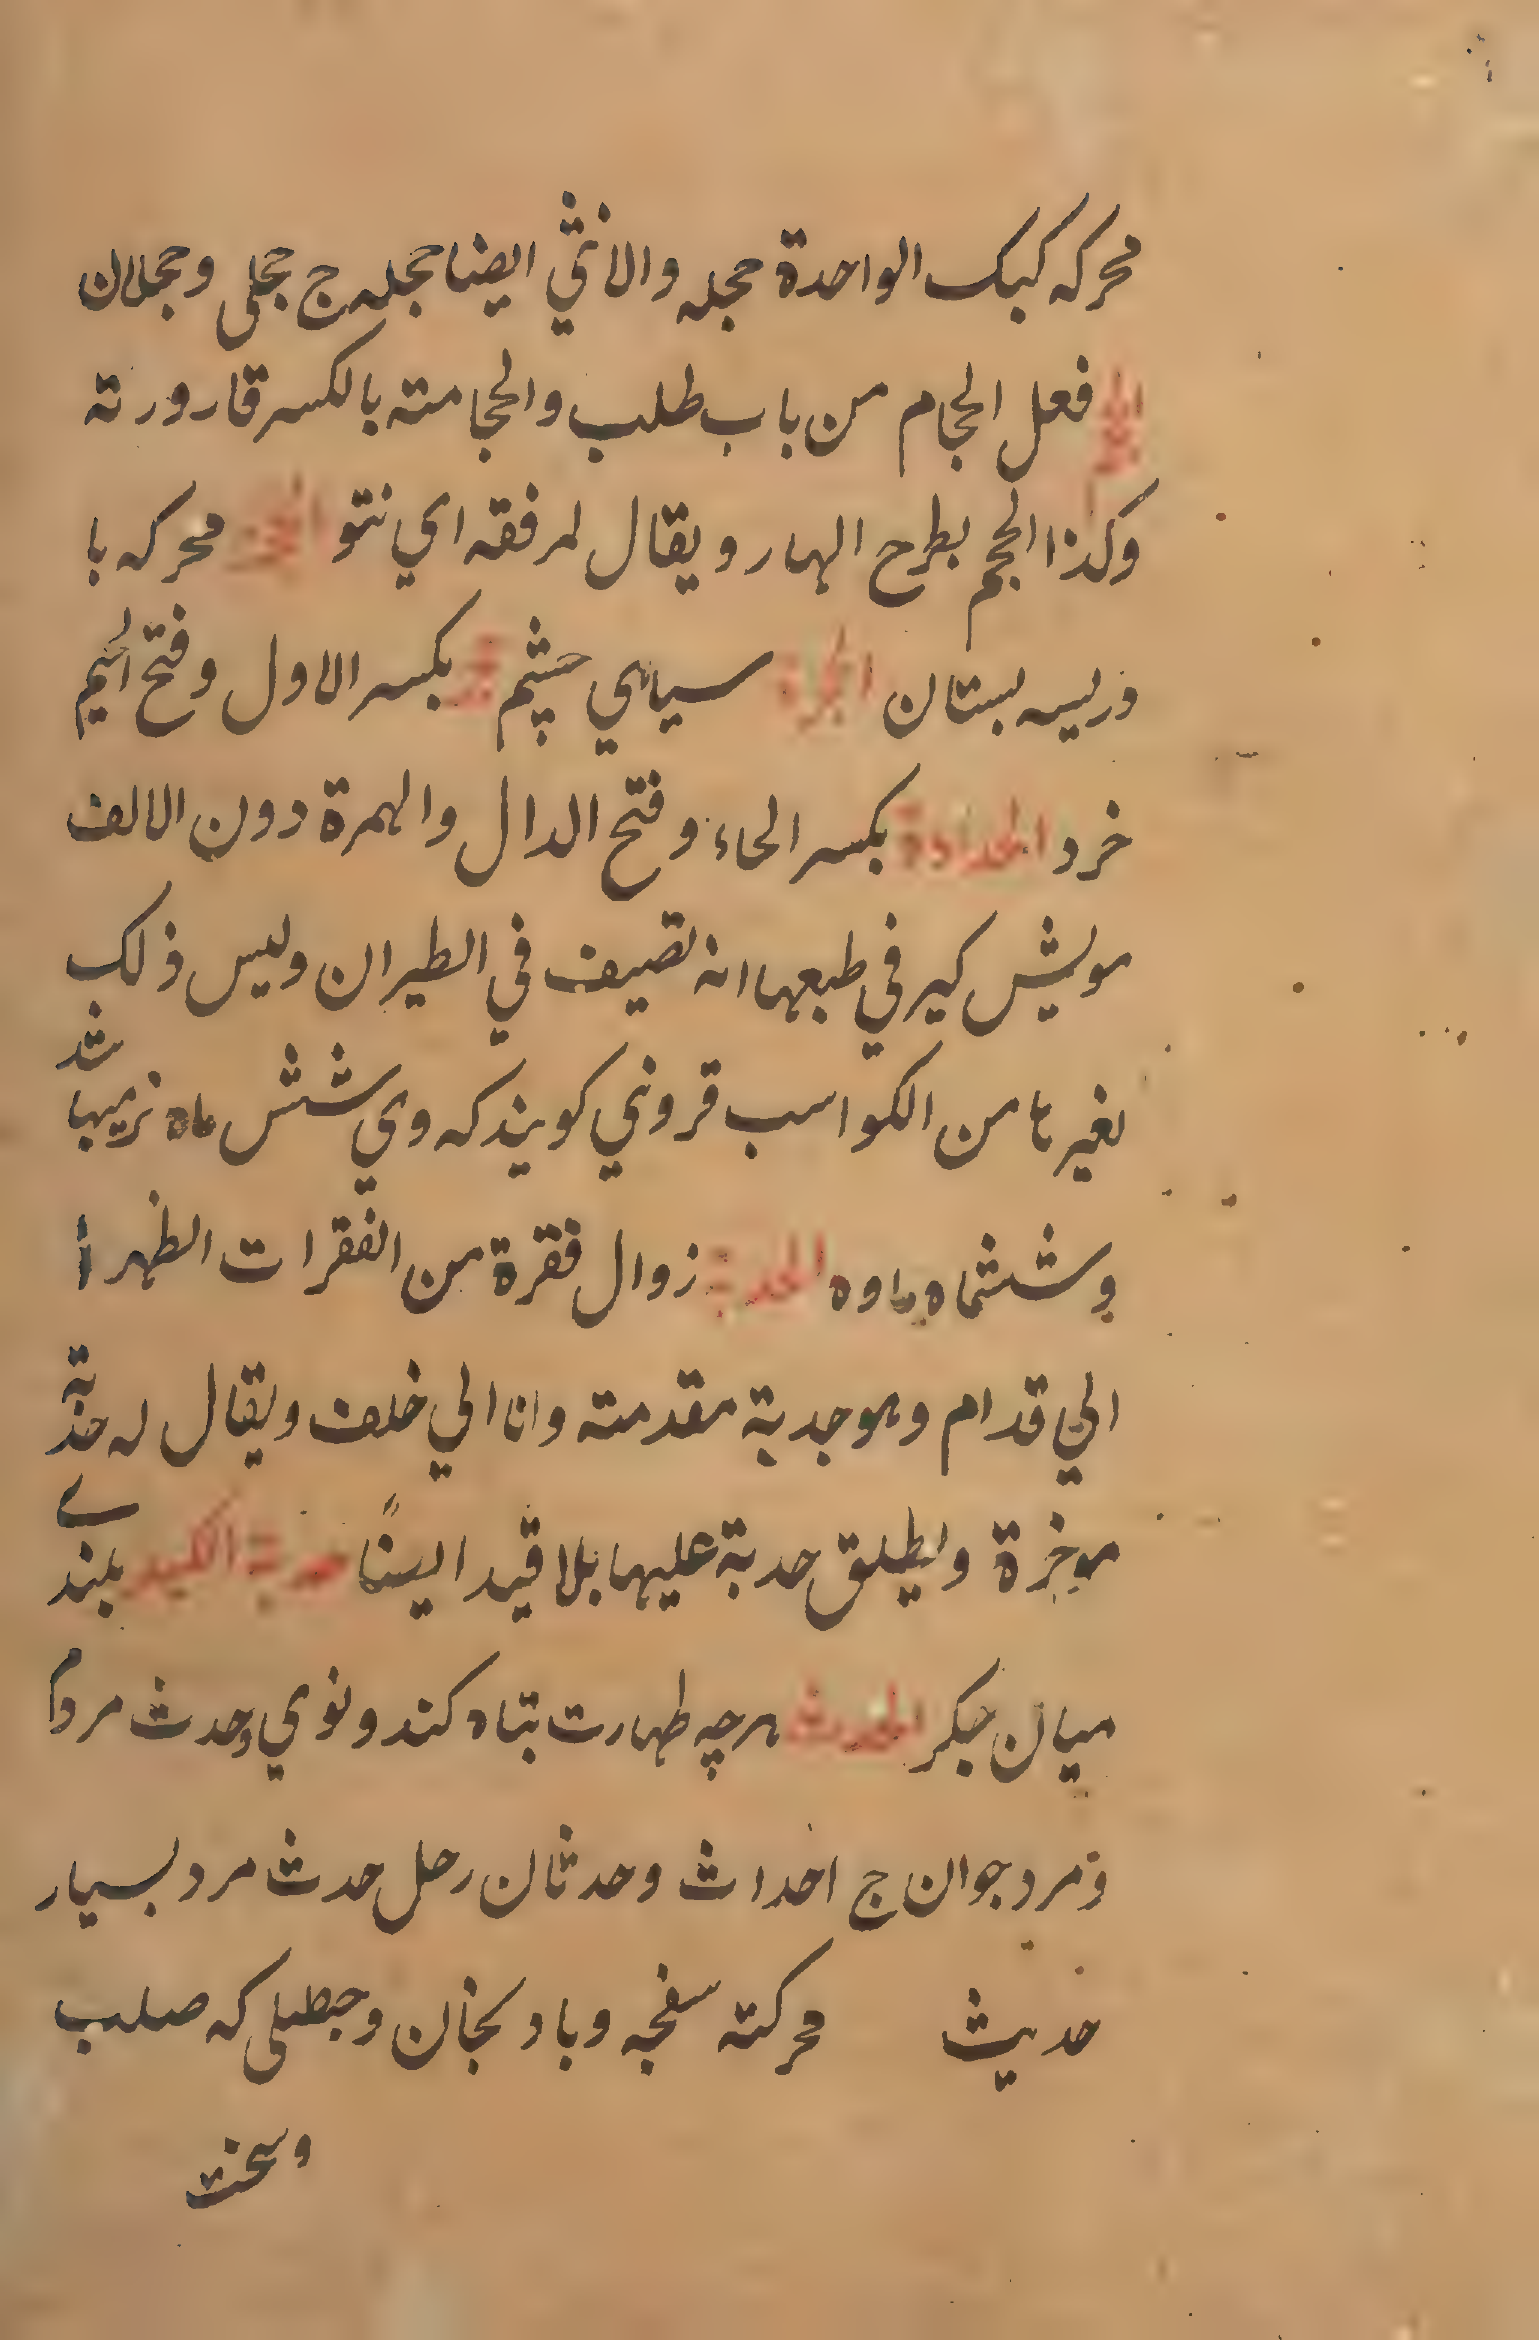 محركه كبك الواحدة حجله والانثي ايضا حجله ج حجلى وحجلان
فعل الحجام من باب طلب والحجامته بالكسر قارورته
وكذا المحجم بطرح الهار ويقال لمرفقه اي نتو محركه با
بستان سياهي چشم بكسر الاول وفتح الجيم
خرد الحداءة بكسر الحاء وفتح الدال والهمرة دون الالف
موش كير في طبعها انه تصيف في الطيران وليس ذلك
لغيرها من الكواسب قزوني كويند كه وي شش ماه نر ميباشد
وششماه ماده الحدبة زوال فقرة من الفقرات الظهر ا
الي قدام وهو حدبة مقدمته واما الي خلف ويقال له حدبة
موخرة ويطلق حدبة عليها بلا قيد ايضًا حدبة الكبد بلندے
ميان جكر الحدث هرچه طهارت تباه كند ونوي وحدث مردم
ومرد جوان ج احداث وحدثان رجل حدث مرد بسيار
حديث محركته سفجه وبادنجان وحبطلى كه صلب
وسخت